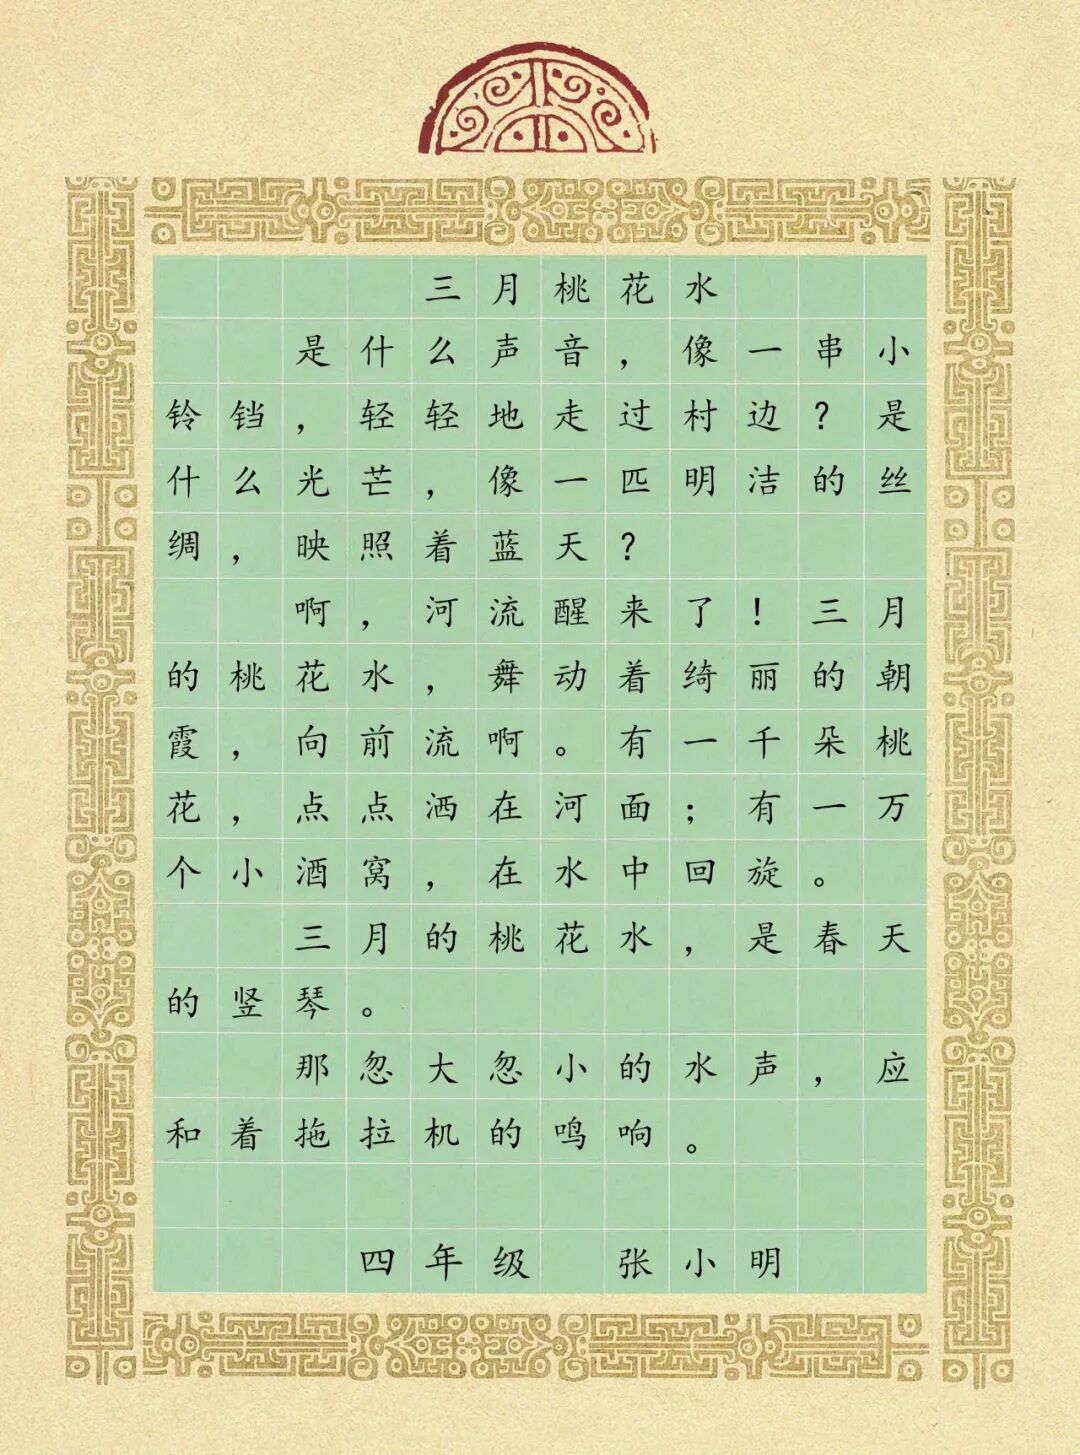 三月桃花水
是什么声音，像一串小
铃铛，轻轻地走过村边？是
什么光芒，像一匹明洁的丝
绸，映照着蓝天？
啊，河流醒来了！三月
的桃花水，舞动着绮丽的朝
霞，向前流啊。有一千朵桃
花，点点洒在河面；有一万
个小酒窝，在水中回旋。
三月的桃花水，是春天
的竖琴。
那忽大忽小的水声，应
和着拖拉机的鸣响。
四年级 张小明